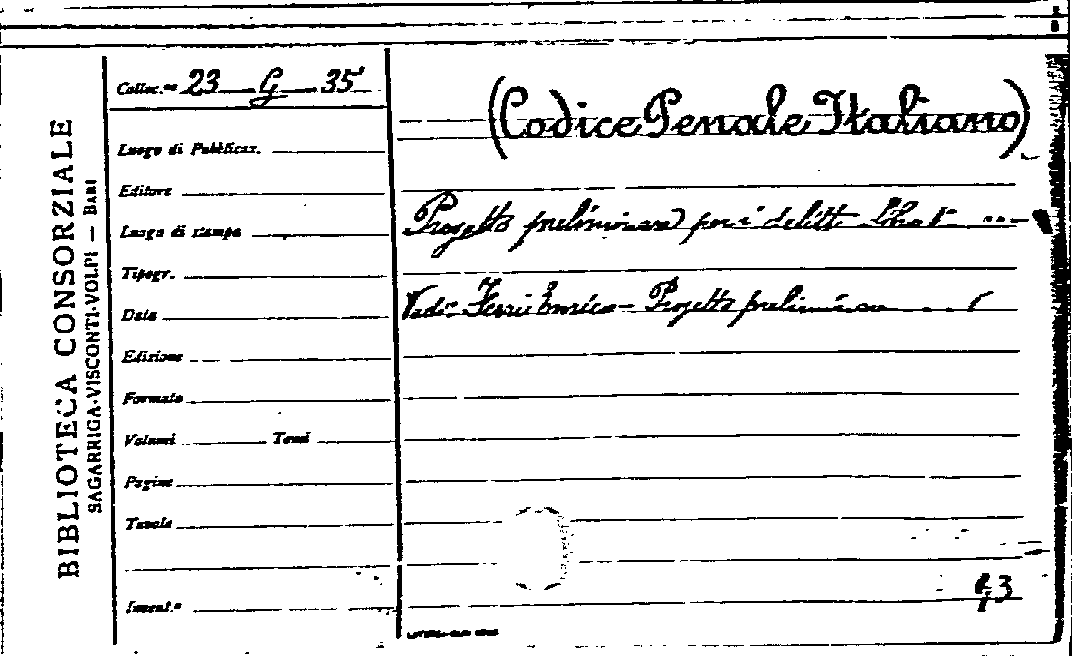 BIBLIOTECA CONSORZIALE
SAGARRIGA-VISCONTI-VOLPI — BARI
Colloc.ne 23 G 35
Luogo di Pubblicaz.
Editore
Luogo di stampa
Tipogr.
Data
Edizione
Formato
Volumi Tomi
Pagine
Tavole
Invent.o
(Codice Penale Italiano)
Progetto preliminare per i delitti
Vedi- Ferri Enrico - Progetto preliminare